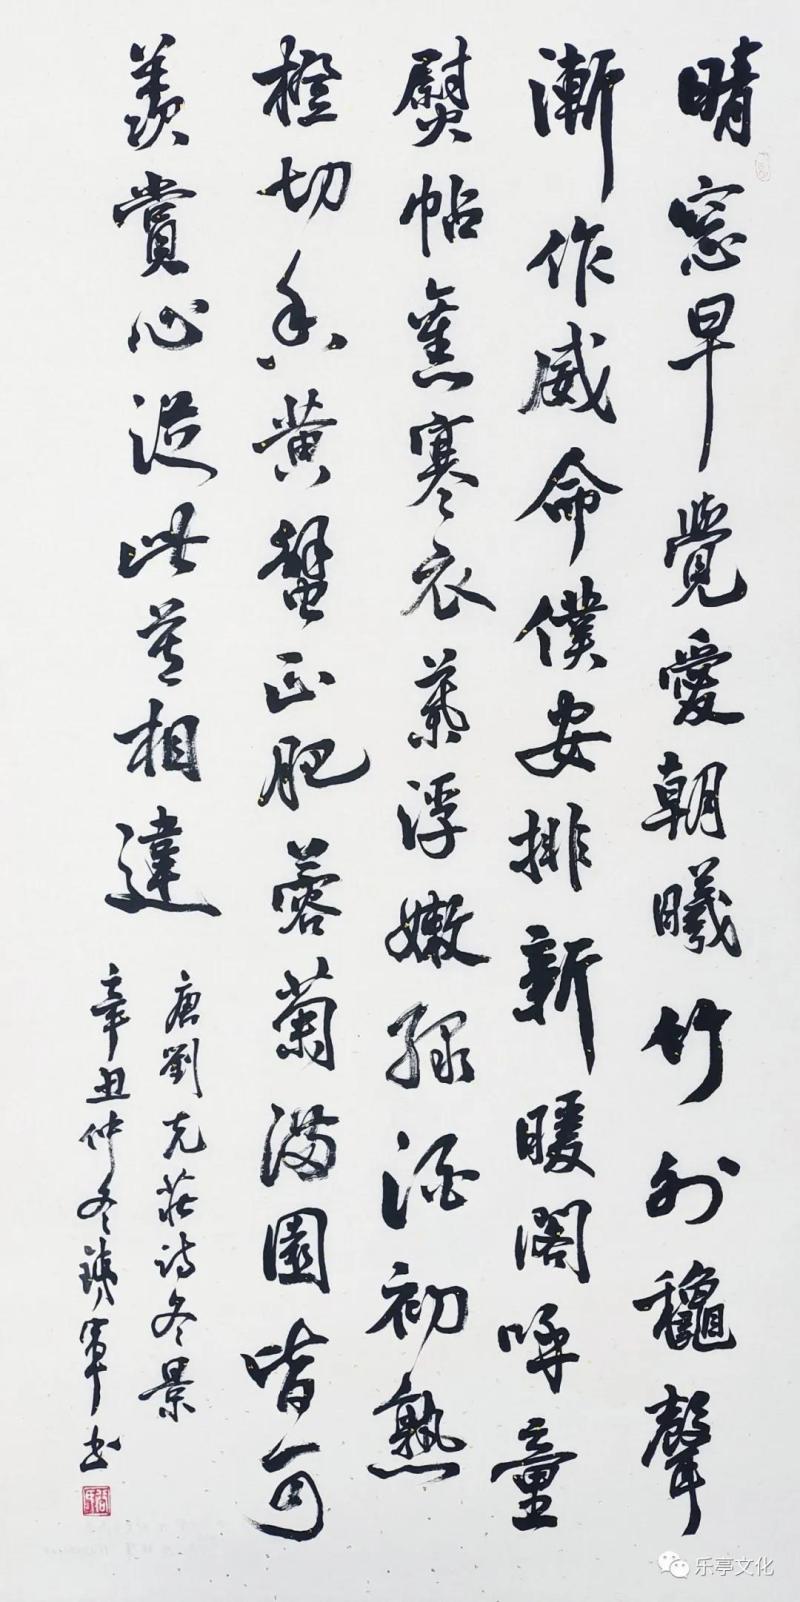 晴窓早覺愛朝曦竹外穐聲
漸作威命僕安排新暖閣呼童
熨帖舊寒衣葉浮嫩綠酒初熟
橙切香黄蟹正肥蓉菊滿園皆可
羨賞心從此莫相違
唐劉克莊詩冬景
辛丑仲冬軍书
乐亭文化